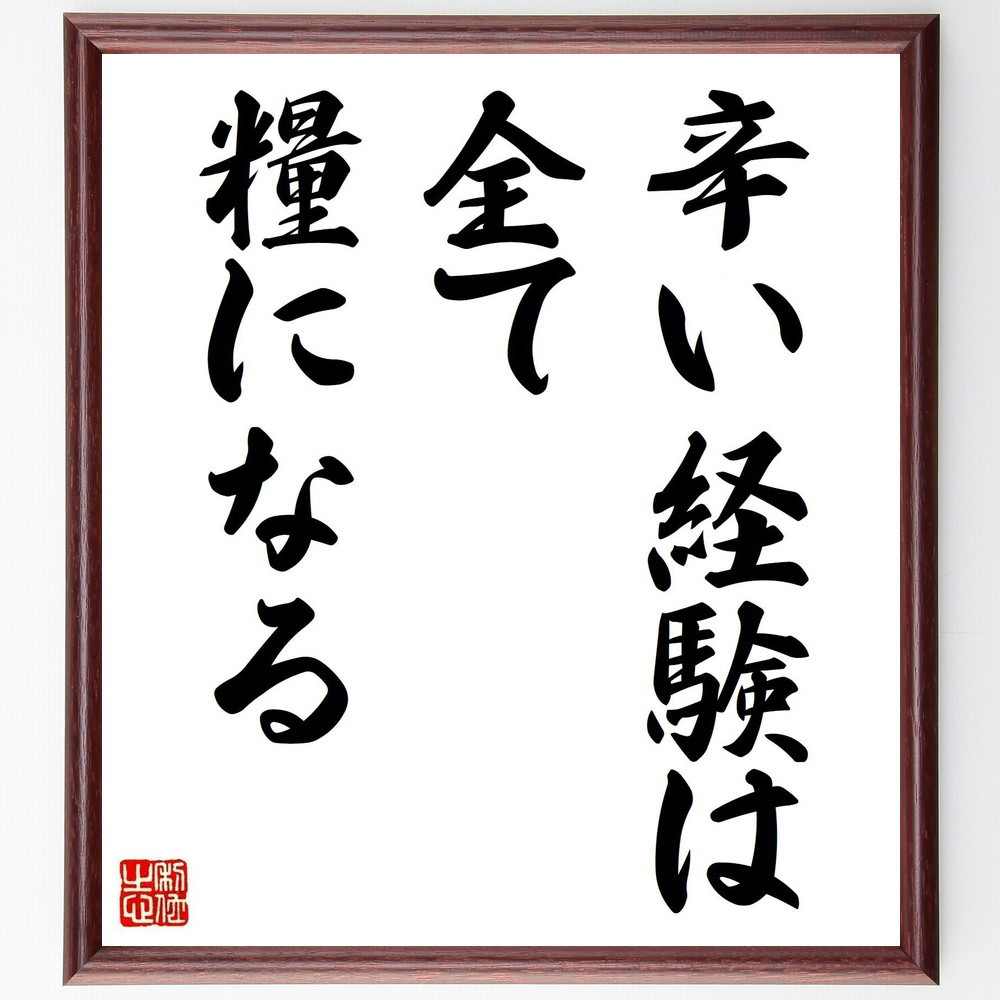 辛い経験は
全て
糧になる